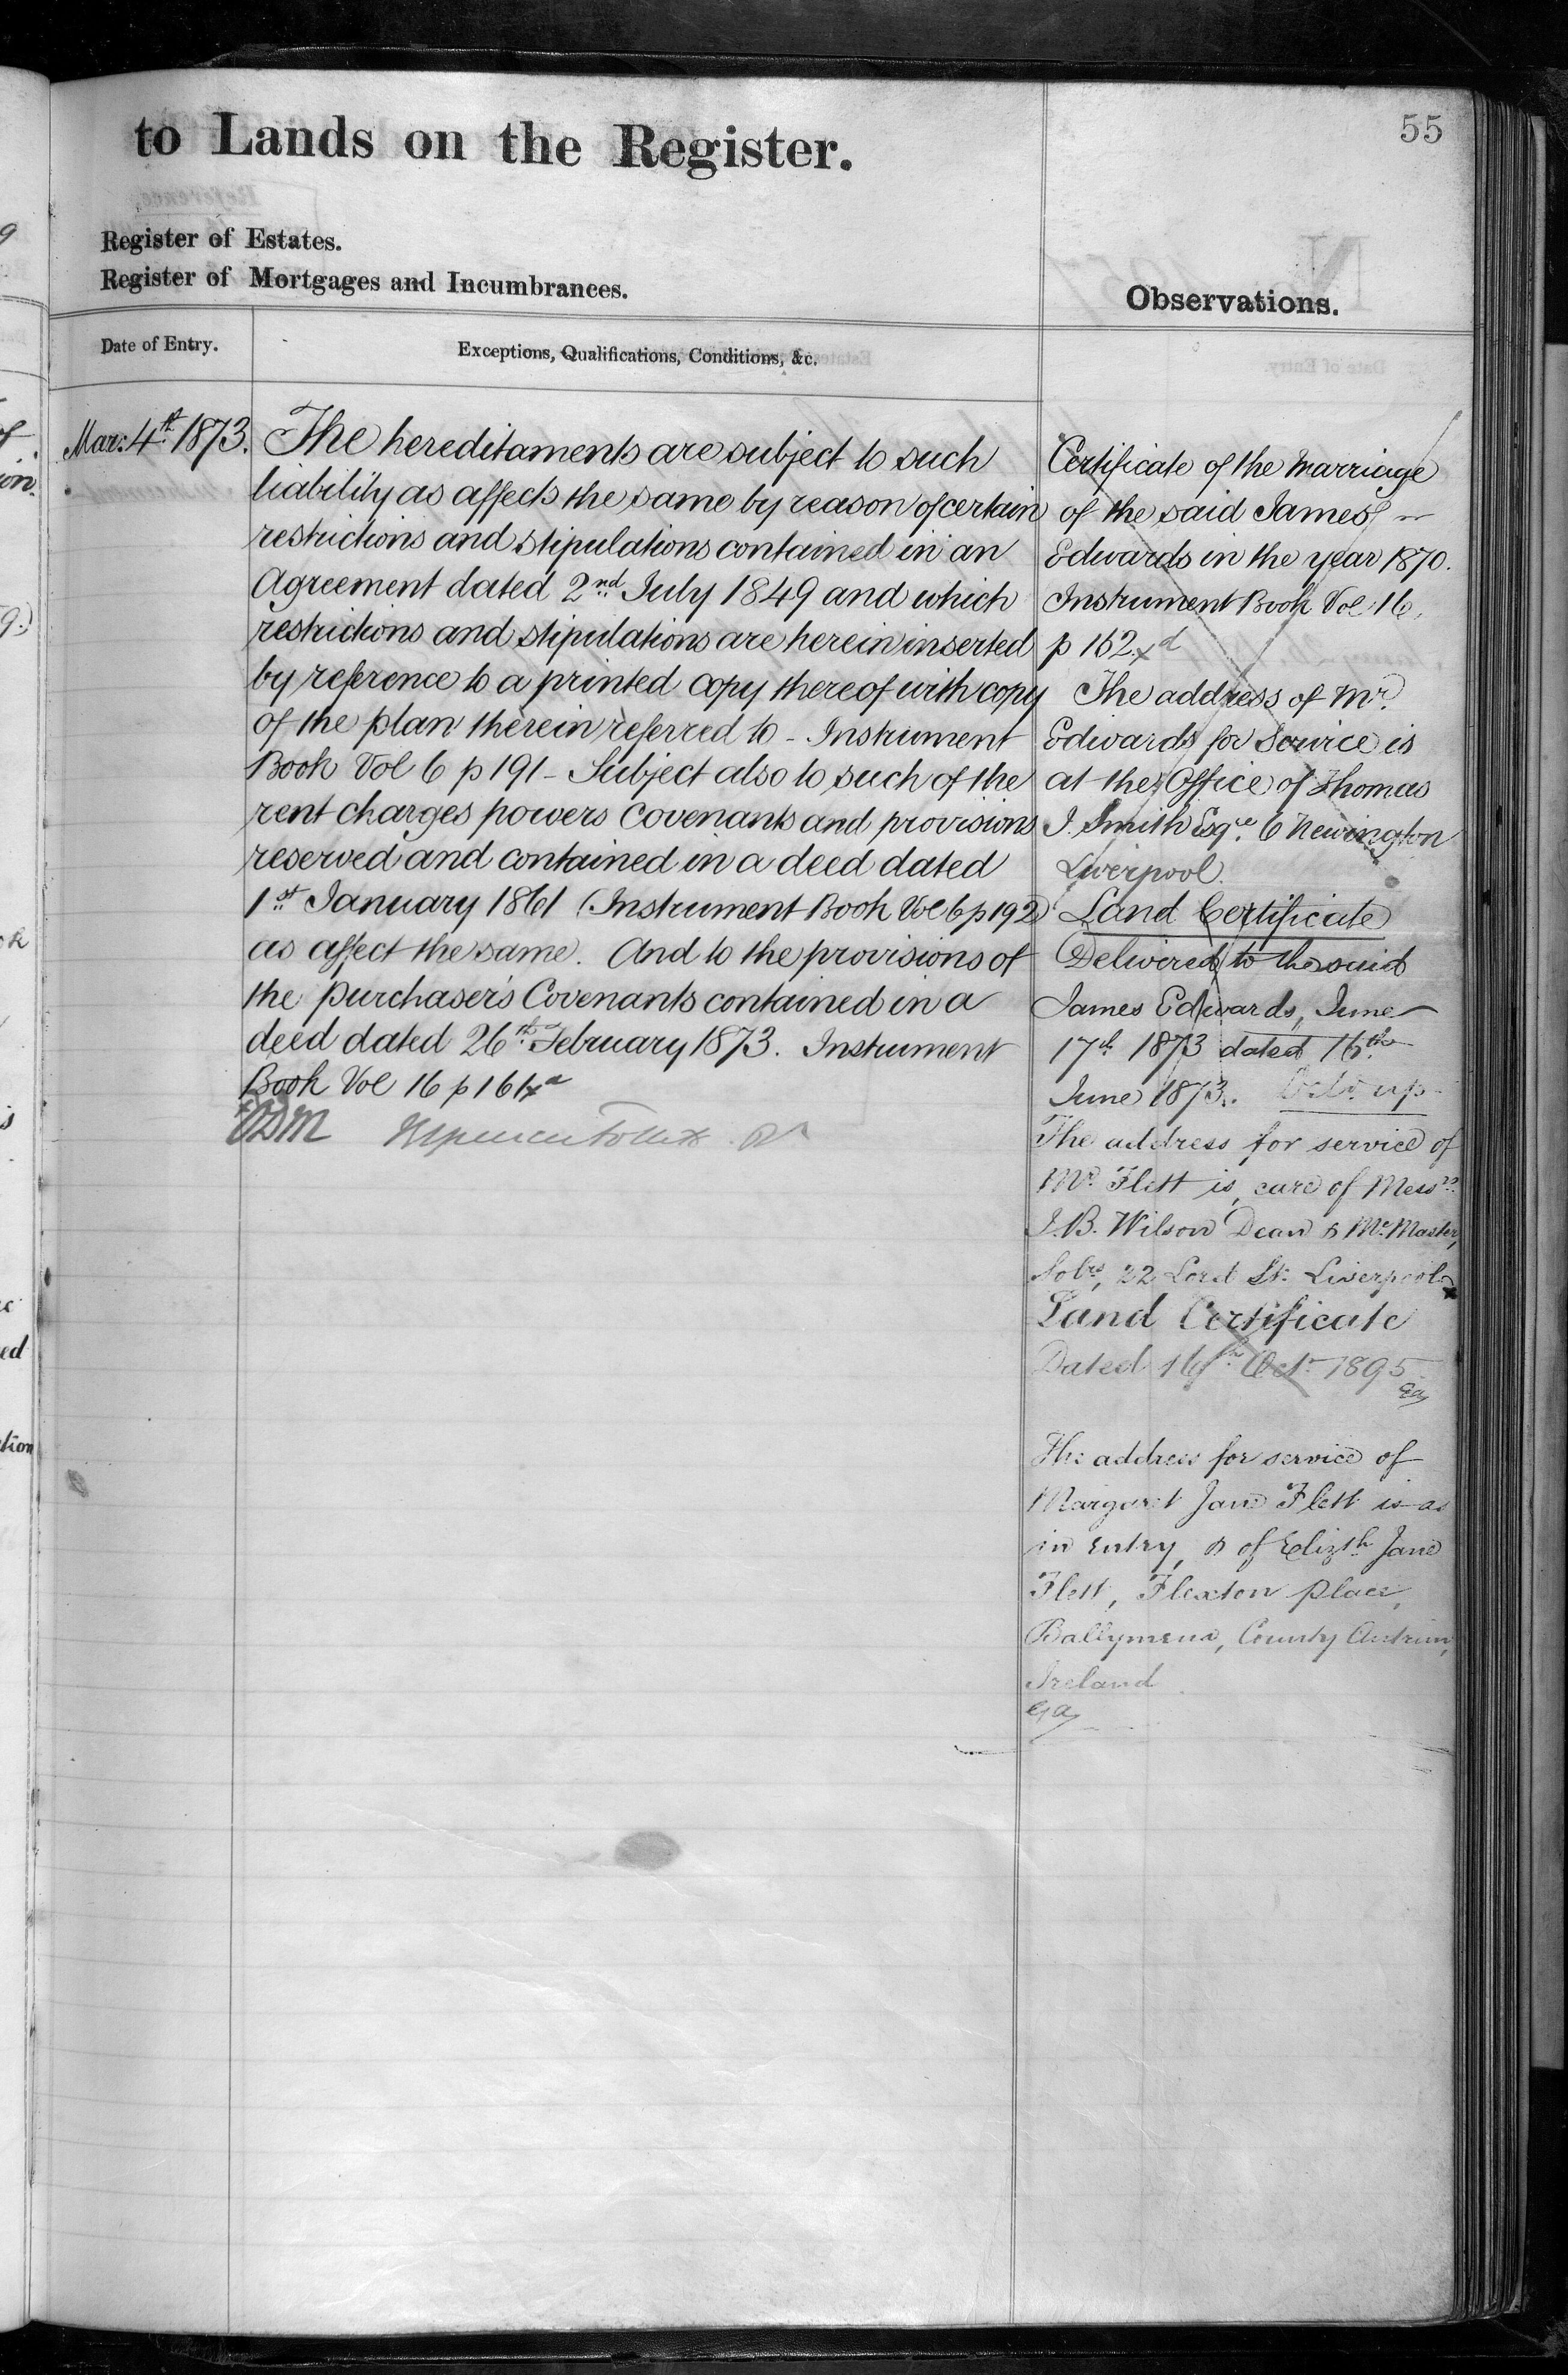 55
to Lands on the Register.
Register of Estates.
Register of Mortgages and Incumbrances.
Observations.
Date of Entry.
Exceptions, Qualifications, Conditions, &c.
Mar: 4th 1873.
The hereditaments are subject to such
liability as affects the same by reason of certain
restrictions and stipulations contained in an
Agreement dated 2nd July 1849 and which
restrictions and stipulations are herein inserted
by reference to a printed copy thereof with copy
of the plan therein referred to - Instrument
Book Vol 6 p 191 - Subject also to such of the
rent charges powers Covenants and provisions
reserved and contained in a deed dated
1st January 1861 (Instrument Book Vol 6 p 192)
as affect the same. And to the provisions of
the purchaser's Covenants contained in a
deed dated 26th February 1873. Instrument
Book Vol 16 p 164
Certificate of the Marriage
of the said James
Edwards in the year 1870.
Instrument Book Vol 16,
p 162
The address of Mr.
Edwards for Service is
at the Office of Thomas
J. Smith Esqre. 6 Newington
Liverpool.
Land Certificate
Delivered to the said
James Edwards, June
17th 1873 dated 16th
June 1873. up
The address for service of
Mr. Flett is, care of Messrs.
J.B. Wilson Dean & McMaster,
Solrs, 22 Lord St. Liverpool
Land Certificate
Dated 16th Octr 1895
The address for service of
Margaret Jane Flett is as
in entry, & of Elizth Jane
Flett, Flexton Place,
Ballymena, County Antrim,
Ireland